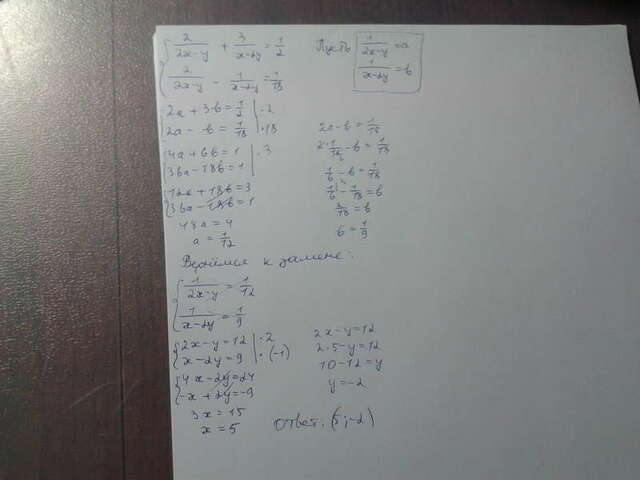 { 2/(2x-y) + 3/(x-2y) = 1/2
{ 2/(2x-y) - 1/(x-2y) = 1/18
Пусть 1/(2x-y) = a
1/(x-2y) = b
{ 2a + 3b = 1/2 | ·2
{ 2a - b = 1/18 | ·18
{ 4a + 6b = 1 | ·3
{ 36a - 18b = 1
{ 12a + 18b = 3
{ 36a - 18b = 1
48a = 4
a = 1/12
2a - b = 1/18
2·1/12 - b = 1/18
1/6 - b = 1/18
1/6 - 1/18 = b
2/18 = b
b = 1/9
Вернёмся к замене:
{ 1/(2x-y) = 1/12
{ 1/(x-2y) = 1/9
{ 2x-y = 12 | ·2
{ x-2y = 9 | ·(-1)
{ 4x-2y = 24
{ -x+2y = -9
3x = 15
x = 5
2x-y = 12
2·5-y = 12
10-12 = y
y = -2
Ответ: (5; -2)